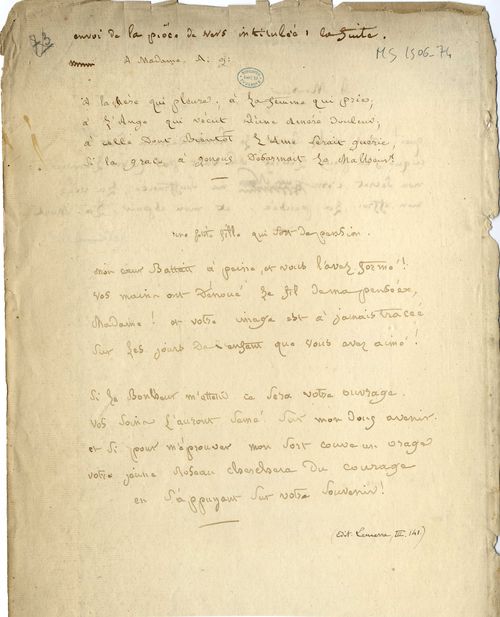 73
envoi de la pièce de vers intitulée : la fuite.
MS 1506-74
A Madame. A. g:
A la Mère qui pleure, à la femme qui prie;
à l'Ange qui vécut d'une amère douleur;
à celle dont bientôt l'âme serait guérie,
Si la grace à genoux désarmait le Malheur!
une petite fille qui sort de pension.
mon cœur Battait à peine, et vous l'avez formé!
vos mains ont dénoué le fil de ma pensée,
Madame! et votre image est à jamais tracée
Sur les jours de l'enfant que vous avez aimé!
Si le Bonheur m'attend ce sera votre ouvrage.
vos soins l'auront semé sur mon doux avenir.
et si pour m'éprouver mon sort couve un orage
votre jeune Roseau cherchera du courage
en s'appuyant sur votre souvenir!
(edit. Lemerre, III, 141.)